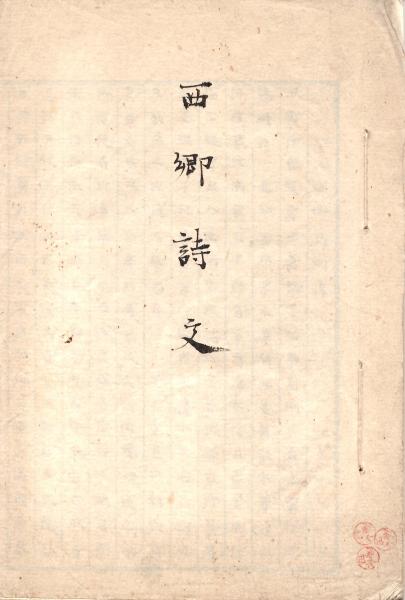 西郷詩文